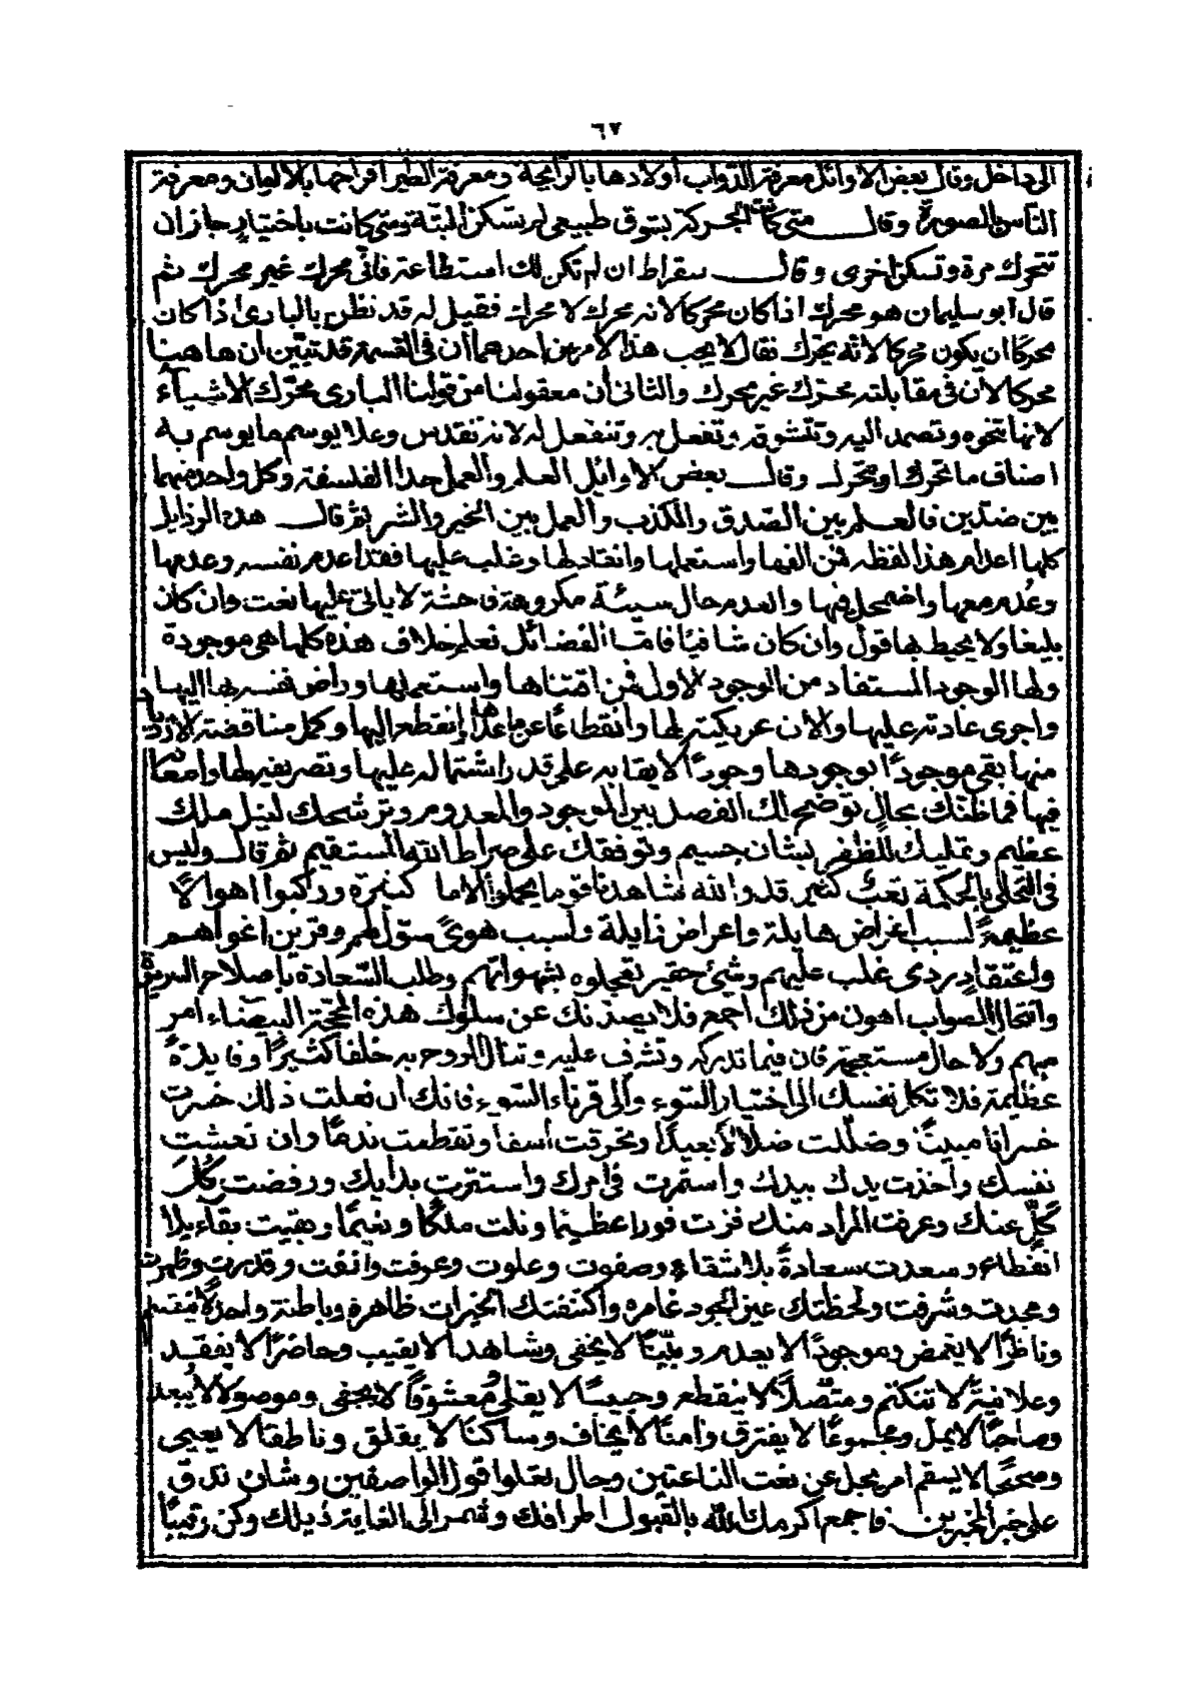 ٦٧
الى داخل وقال بعض الاوائل معرفة الدواب أولادها بالرايحة ومعرفة الطير افراخها بالالوان ومعرفة
الناس بالصورة وقال متى كانت الحركة بتشوق طبيعى لم تسكن البتة ومتى كانت باختيار جاز ان
تتحرك مرة وتسكن اخرى وقال سقراط ان لم تكن لك استطاعة فانى محرك غير محرك ثم
قال ابو سليمان هو محرك اذا كان محركا لانه محرك لا محرك فقيل له قد نظن بالبارئ اذا كان
محركا ان يكون محركا لانه يحرك فقال لا يجب هذا لامرين احدهما أن فى القسمة قد تبين ان هاهنا
محركا لان فى مقابلته محرك غير محرك والثانى أن معقولنا من قولنا البارى محرك الاشياء
لانها تنحوه وتصمد اليه وتتشوقه وتفعل به وتنفعل له لانه تقدس وعلا يوسم ما يوسم به
اصناف ما تحرك او يحرك وقال بعض الاوايل العلم والعمل حد الفلسفة وكل واحد منهما
بين ضدين فالعلم بين الصدق والكذب والعمل بين الخير والشر ثم قال هذه الرذايل
كلها اعدام هذا لفظه فمن الفها واستعملها وانقاد لها وغلب عليها فقد اعدم نفسه وعدمها
وعدم معها واضمحل فيها والعدم حال سيئة مكروهة فاحشة لا ياتى عليها نعت وان كان
بليغا ولا يحيط بها قول وان كان شافيا فامّا الفضائل تعلم خلاف هذه كلها هى موجودة
ولها الوجود المستفاد من الوجود الاول فمن اقتناها واستعملها وراض نفسه بها اليها
واجرى عادته عليها والان عريكته لها وانقطاعا عن ما عداها إنقطع اليها وكمل مناقضته
منها بقى موجودا بوجودها وجودا لايقا به على قدر اشتماله عليها وتصريفه لها وامعانا
فيها فما ظنك بحال توضح لك الفصل بين الموجود والمعدوم وترشحك لنيل ملك
عظيم وتمليك للظفر بشان جسيم وتوفقك على صراط الله المستقيم ثم قال وليس
فى التحلى بالحكمة تعب كثير قد والله نشاهدنا قوما يحملوا الاما كثيرة وركبوا اهوالا
عظيمة لسبب اغراض هايلة واعراض زايلة ولسبب هوى سوّل لهم وقرين اغواهم
واعتقاد ردى غلب عليهم وشئ حقير تعجلوه بشهواتهم وطلب السعادة باصلاح السريرة
وانتحال الصواب اهون من ذلك اجمع فلا يصدنك عن سلوك هذه المحجة البيضاء امر
مبهم ولا حال مستعجمة فان فيما تدركه وتشرف عليه وتنال الروح به خلفا كثيرا وفايدة
عظيمة فلا تكل نفسك الى اختيار السوء والى قرناء السوء فانك ان فعلت ذلك خسرت
خسرانا مبينا وضللت ضلالا بعيدا وتحرقت أسفا وتقطعت ندما وان نعشت
نفسك وأخذت يدك بيدك واستمرت فى امرك واستنرت برأيك ورفضت كل
كلٍّ عنك وعرفت المراد منك فزت فوزا عظيما ونلت ملكا ونعيما وبقيت بقاء بلا
انقطاع وسعدت سعادة بلا شقاء وصفوت وعلوت وعرفت وانفت وقدرت وظهرت
ومجدت وشرفت ولحظتك عين الجود غامرة واكنفتك الخيرات ظاهرة وباطنة واحدا لا ينقسم
وناظرا لا يغمض وموجودا لا يعدم وبيّنا لا يخفى وشاهدا لا يغيب وحاضرا لا يفقد
وعلانية لا تنكتم ومتصلا لا ينقطع وحبيبا لا يقلى ومعشوقا لا يجفى وموصولا لا يبعد
وصاحبا لا يمل ومجموعا لا يفترق وامنا لا يخاف وساكنا لا يقلق وناطقا لا يعيى
وصحيحا لا يسقم امر يجل عن نعت الناعتين وحال تعلوا قول الواصفين وشان تدق
على خبر المخبرين فاجمع اكرمك الله بالقبول اطرافك وشمر الى الغاية ذيلك وكن رقيبا